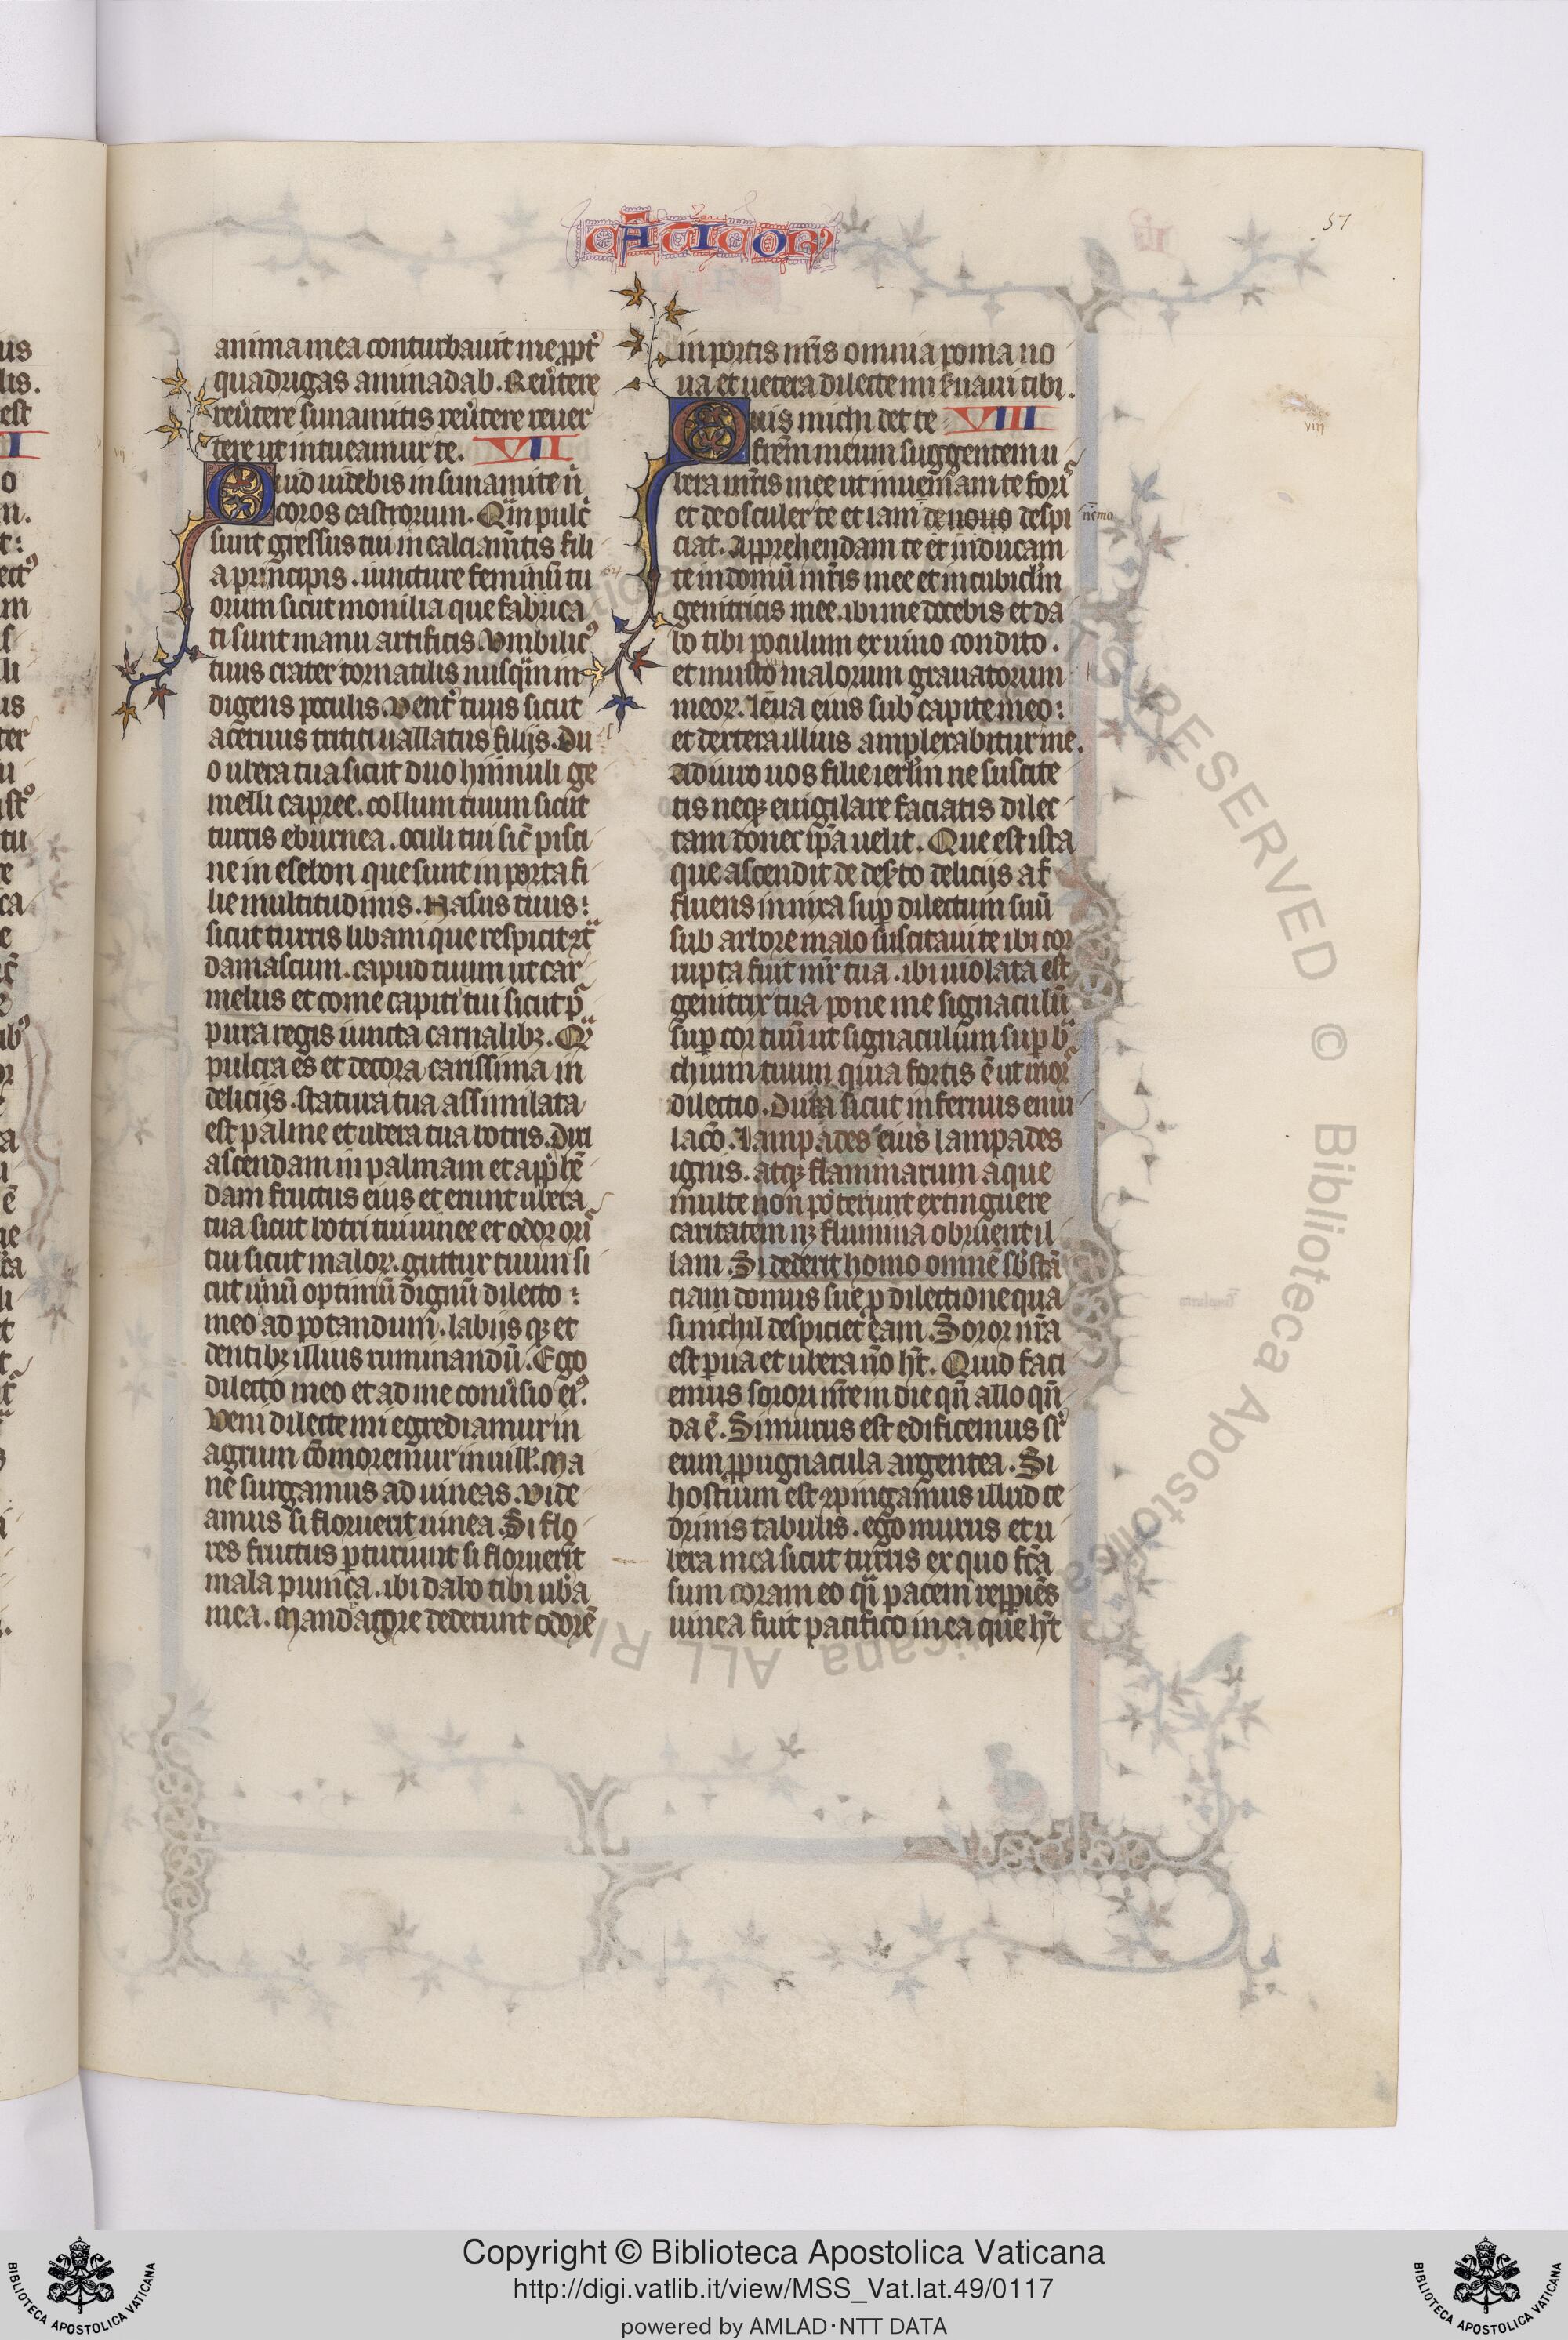 CANTICOR
57
anima mea conturbauit me ꝓpt̾
quadrigas aminadab. Reu̾tere
reu̾tere sunamitis reu̾tere reuer
tere ut intueamur te. VII
vij
Quid uidebis in sunamite ñ
coros castrorum. Qͣm pulc̾
sunt gressus tui in calciam̃tis fili
a principis. iuncture feminũ tu
orum sicut monilia que fabrica
ti sunt manu artificis. Vmbilicꝰ
tuus crater tornatilis nusqͣm in
digens poculis. Vent̾ tuus sicut
aceruus tritici uallatus filijs. Du
o ubera tua sicut duo hinnuli ge
melli capree. collum tuum sicut
turris eburnea. oculi tui sic̃ pisci
ne in esebon que sunt in porta fi
lie multitudinis. Nasus tuus:
sicut turris libani que respicit ↄtͣ
damascum. capud tuum ut car
melus et come capiti tui sicut p̾
pura regis iuncta carnalibꝫ. Qͣ
pulcra es et decora carissima in
delicijs. statura tua assimilata
est palme et ubera tua botris. Dixi
ascendam in palmam et app̾hẽ
dam fructus eius et erunt ubera
tua sicut botri tui uinee et odor oris̾
tui sicut malorꝝ. guttur tuum si
cut uinũ optimũ dignũ dilecto:
meo ad potandum. labijs qꝫ et
dentibꝫ illius ruminandũ. Ego
dilecto meo et ad me conu̾sio eiꝰ.
Veni dilecte mi egrediamur in
agrum cõmoremur in uill̾. Ma
ne surgamus ad uineas. Vide
amus si floruerit uinea. Si flo
res fructus ꝑturiunt si floruerũt
mala punica. ibi dabo tibi ub̾a
mea. Mandragore dederunt odorẽ
in portis nr̃is omnia poma no
ua et uetera dilecte mi s̾uaui tibi.
Quis michi det te VIII
viij
frẽm meum suggentem u
bera mr̃is mee ut inueniam te foris̾
et deosculer te et iam de nouo despi
nemo
ciat. Apprehendam te et inducam
te in domũ mr̃is mee et in cubicl̾m
genitricis mee. ibi me docebis et da
bo tibi poculum ex uino condito.
et musto malorum granatorum
meorꝝ. leua eius sub capite meo:
et dextera illius amplexabitur me.
Adiuro uos filie ierl̾m ne suscite
tis neqꝫ euigilare faciatis dilec
tam donec ip̃a uelit. Que est ista
que ascendit de des̾to delicijs af
fluens innixa sup̱ dilectum suũ
sub arbore malo suscitaui te ibi cor
rupta fuit mr̃ tua. ibi uiolata est
genitrix tua pone me signaculũ
sup̱ cor tuũ ut signaculum sup̱ bͣ
chium tuum quia fortis ẽ ut mors̾
dilectio. Dura sicut infernus emu
lac̃o. Lampades eius lampades
ignis. atqꝫ flammarum aque
multe non poterunt extinguere
caritatem nꝫ flumina obruent il
lam. Si dederit homo omnẽ sb̾stã
ciam domus sue ꝓ dilectione qua
si nichil despiciet eam. Soror nr̃a
est ꝑua et ubera nõ hꝫ. Quid faci
emus sorori nr̃e in die qñ alloqñ
da ẽ. Si murus est edificemus sr̾
eum ꝓpugnacula argentea. Si
hostium est ↄpingamus illud ce
drinis tabulis. ego murus et u
bera mea sicut turris ex quo fc̃a
sum coram eo qͣi pacem reppiẽs
uinea fuit pacifico in ea que hꝫ
ALL RIGHTS RESERVED © Biblioteca Apostolica Vaticana
Copyright © Biblioteca Apostolica Vaticana
http://digi.vatlib.it/view/MSS_Vat.lat.49/0117
powered by AMLAD·NTT DATA
BIBLIOTECA APOSTOLICA VATICANA
BIBLIOTECA APOSTOLICA VATICANA